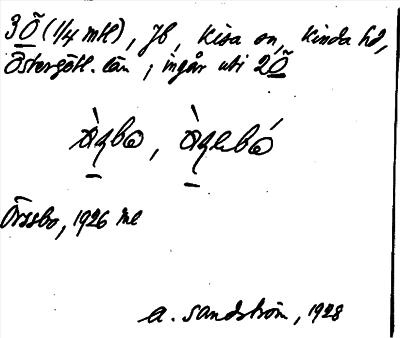 3 Õ (1/4 mtl), Jb, Kisa sn, Kinda hd,
Östergötl. län; ingår uti 2 Õ
Örssbo, 1926 me
A. Sandström, 1928